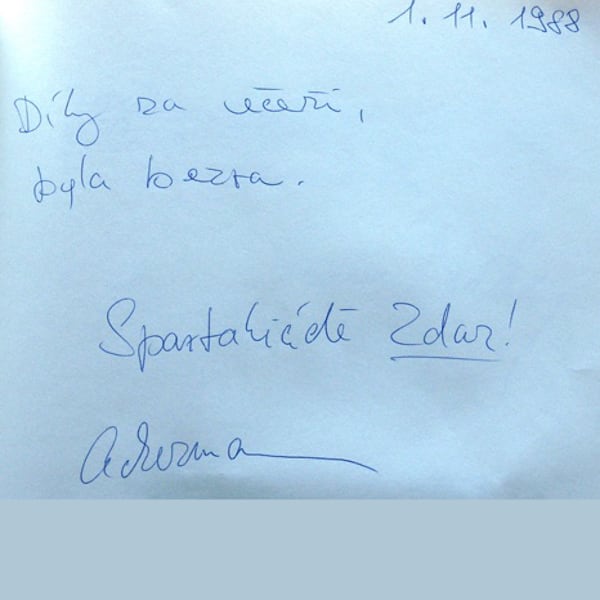 1. 11. 1988
Díky za večeři,
byla bezva.
Spartakiádě Zdar!
Ackerman